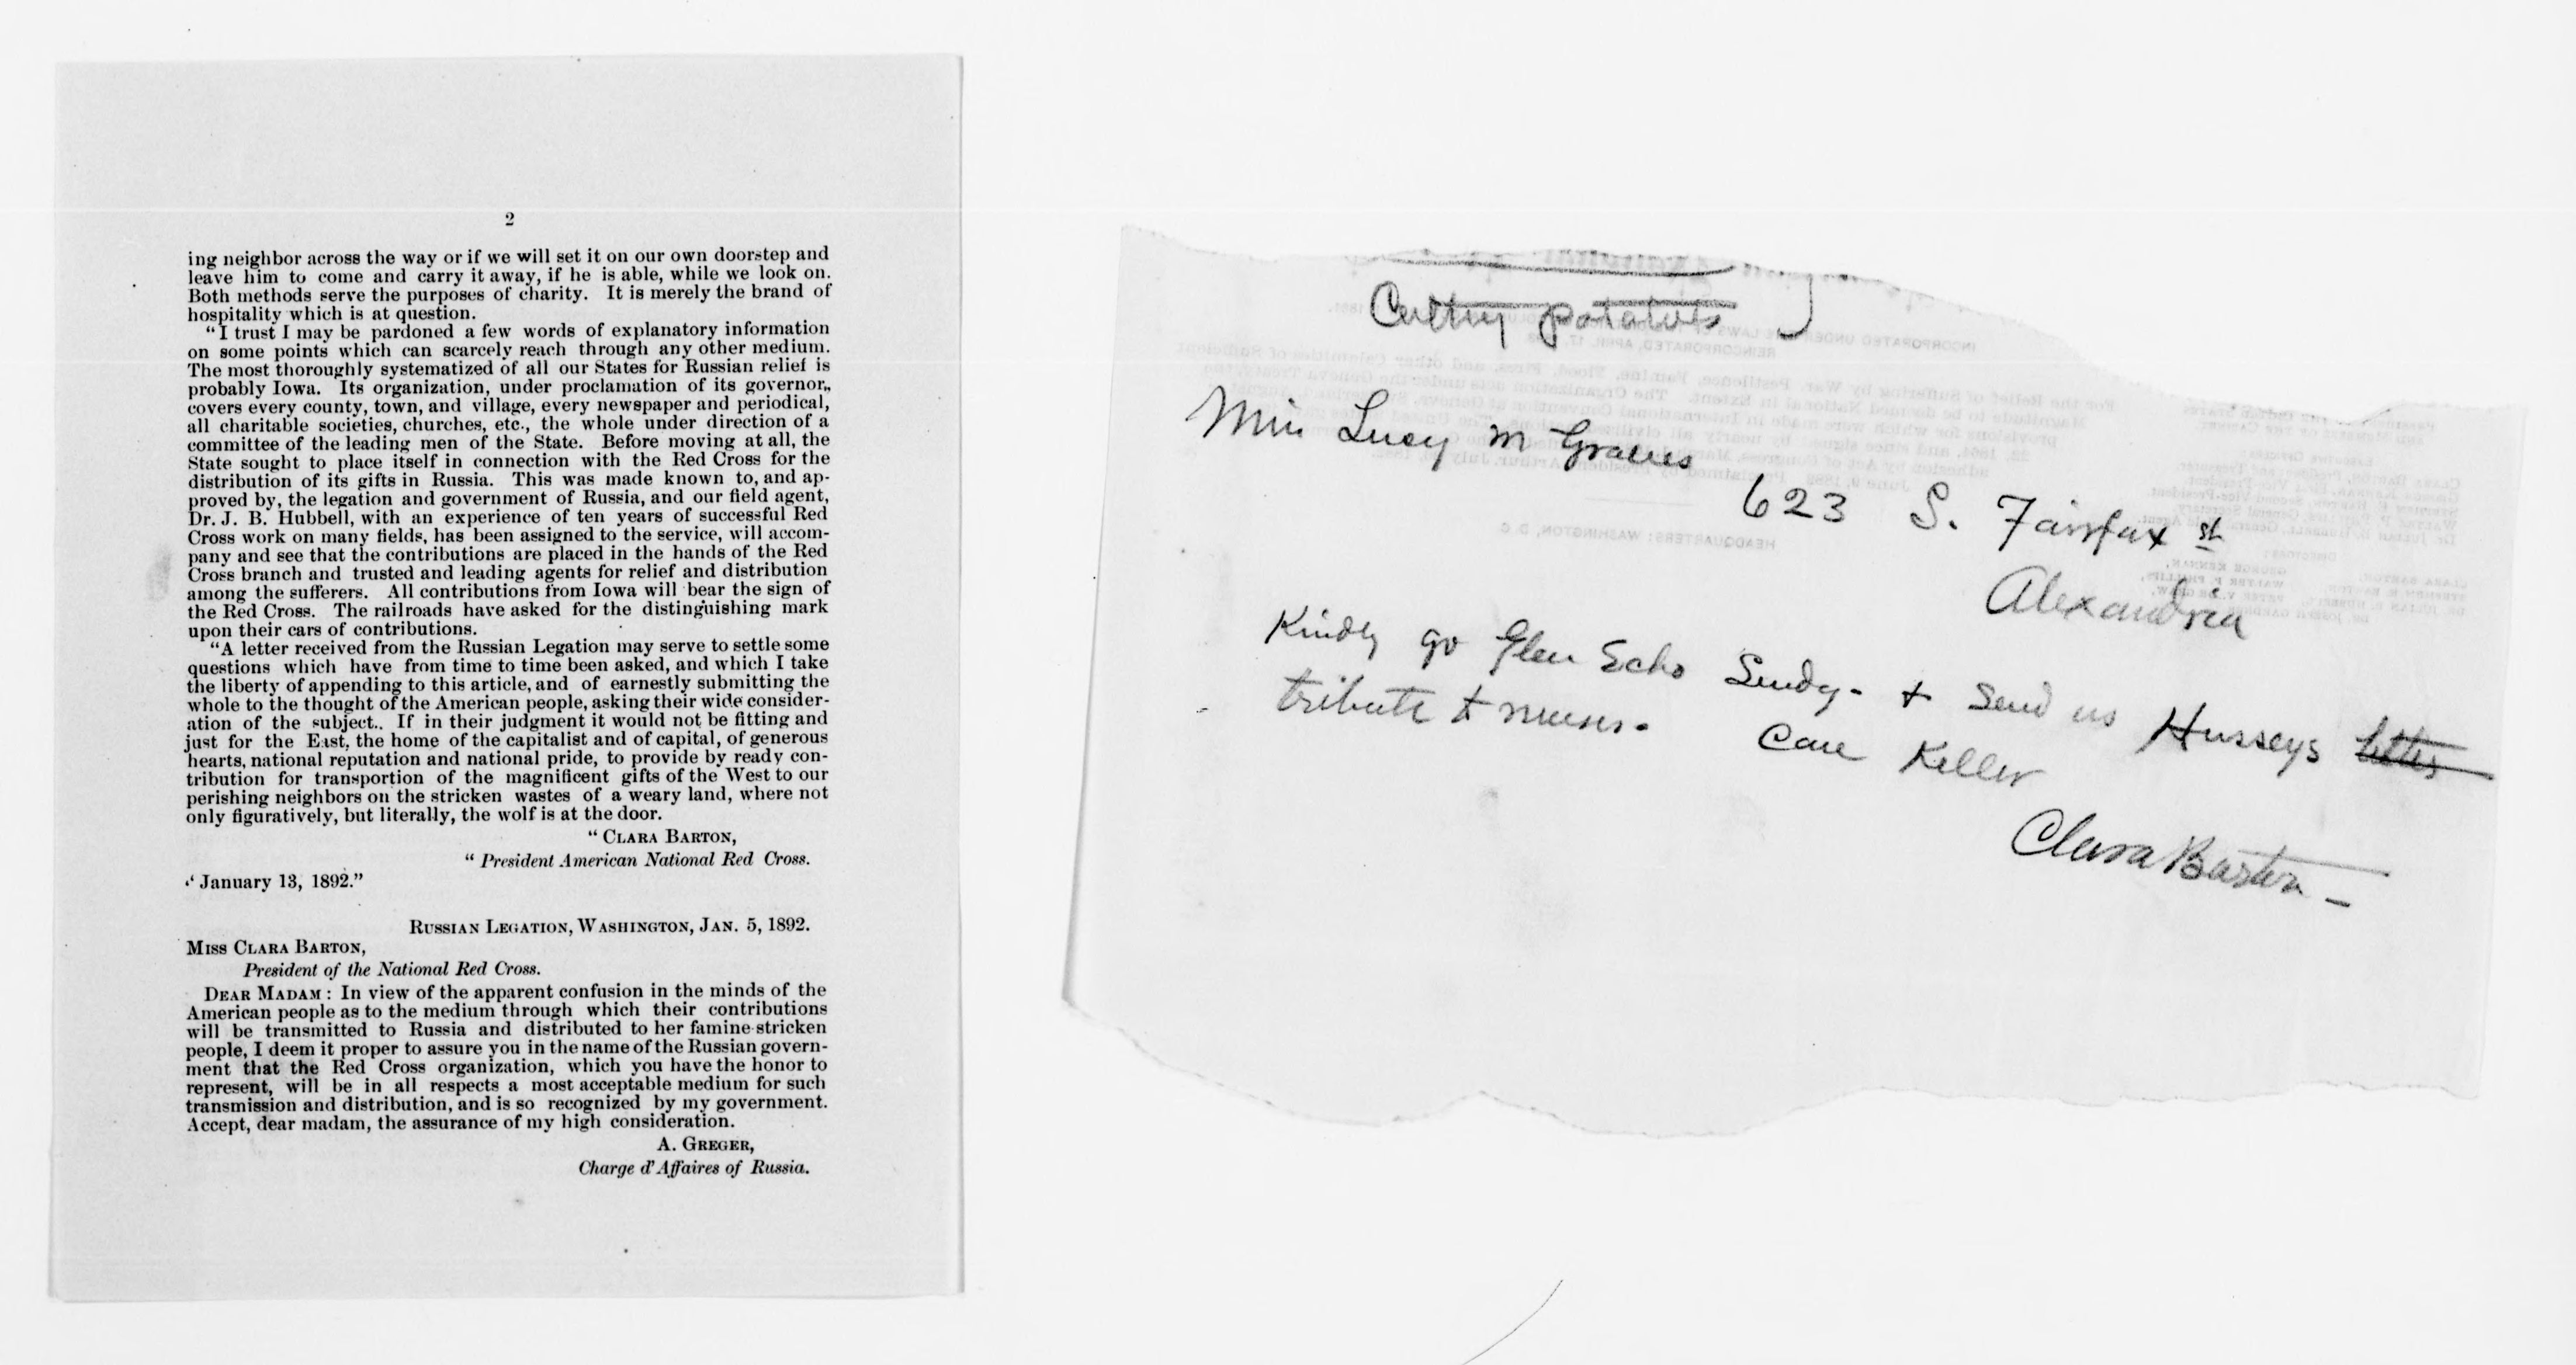 2
ing neighbor across the way or if we will set it on our own doorstep and
leave him to come and carry it away, if he is able, while we look on.
Both methods serve the purposes of charity. It is merely the brand of
hospitality which is at question.
“I trust I may be pardoned a few words of explanatory information
on some points which can scarcely reach through any other medium.
The most thoroughly systematized of all our States for Russian relief is
probably Iowa. Its organization, under proclamation of its governor,,
covers every county, town, and village, every newspaper and periodical,
all charitable societies, churches, etc., the whole under direction of a
committee of the leading men of the State. Before moving at all, the
State sought to place itself in connection with the Red Cross for the
distribution of its gifts in Russia. This was made known to, and ap-
proved by, the legation and government of Russia, and our field agent,
Dr. J. B. Hubbell, with an experience of ten years of successful Red
Cross work on many fields, has been assigned to the service, will accom-
pany and see that the contributions are placed in the hands of the Red
Cross branch and trusted and leading agents for relief and distribution
among the sufferers. All contributions from Iowa will bear the sign of
the Red Cross. The railroads have asked for the distinguishing mark
upon their cars of contributions.
“A letter received from the Russian Legation may serve to settle some
questions which have from time to time been asked, and which I take
the liberty of appending to this article, and of earnestly submitting the
whole to the thought of the American people, asking their wide consider-
ation of the subject.. If in their judgment it would not be fitting and
just for the East, the home of the capitalist and of capital, of generous
hearts, national reputation and national pride, to provide by ready con-
tribution for transportion of the magnificent gifts of the West to our
perishing neighbors on the stricken wastes of a weary land, where not
only figuratively, but literally, the wolf is at the door.
“ CLARA BARTON,
“ President American National Red Cross.
“ January 13, 1892.”
RUSSIAN LEGATION, WASHINGTON, JAN. 5, 1892.
MISS CLARA BARTON,
President of the National Red Cross.
DEAR MADAM : In view of the apparent confusion in the minds of the
American people as to the medium through which their contributions
will be transmitted to Russia and distributed to her famine-stricken
people, I deem it proper to assure you in the name of the Russian govern-
ment that the Red Cross organization, which you have the honor to
represent, will be in all respects a most acceptable medium for such
transmission and distribution, and is so recognized by my government.
Accept, dear madam, the assurance of my high consideration.
A. GREGER,
Charge d'Affaires of Russia.
potatoes
Miss Lucy M Graves
623 S. Fairfax st
Alexandria
Kindly go Glen Echo Sundy - + send us Husseys letter
tribute to nurses.
Care Keller
Clara Barton -